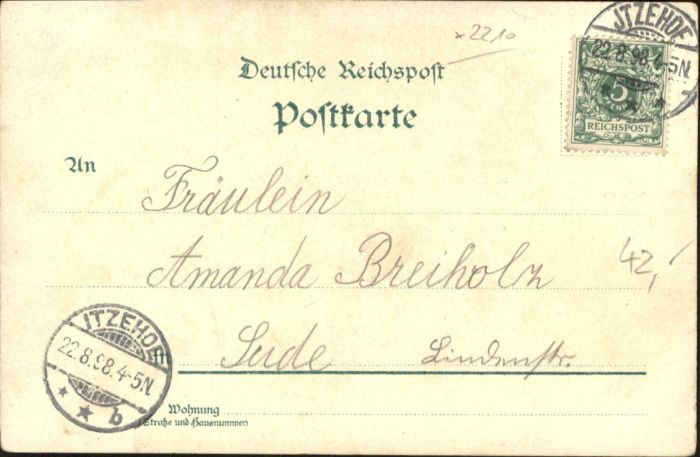 *2210
JTZEHOE
22.8.98.4-5N.
5
PFENNIG
REICHSPOST
Deutsche Reichspost
Postkarte
An
Fräulein
Amanda Breiholz
42,-
Lindenstr.
JTZEHOE
22.8.98.4-5N.
* * b
Wohnung
(Straße und Hausnummer)